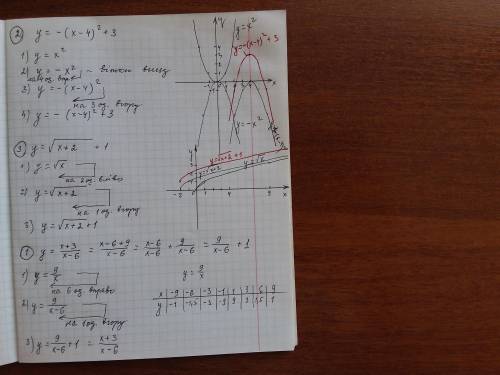 ② y = -(x-4)² + 3
1) y = x²
2) y = -x² ~ вітки вниз
на 4 од. вправо
3) y = -(x-4)²
на 3 од. вгору
4) y = -(x-4)² + 3
y = x²
y = -(x-4)² + 3
y = -x²
③ y = √(x+2) + 1
1) y = √x
на 2 од. вліво
2) y = √(x+2)
на 1 од. вгору
3) y = √(x+2) + 1
y = √(x+2) + 1
y = √(x+2)
y = √x
-2 0 4 9 x
① y = (x+3)/(x-6) = (x-6+9)/(x-6) = (x-6)/(x-6) + 9/(x-6) = 9/(x-6) + 1
1) y = 9/x
на 6 од. вправо
2) y = 9/(x-6)
на 1 од. вгору
3) y = 9/(x-6) + 1 = (x+3)/(x-6)
y = 9/x
x | -9 | -6 | -3 | -1 | 1 | 3 | 6 | 9
y | -1 | -1,5 | -3 | -9 | 9 | 3 | 1,5 | 1